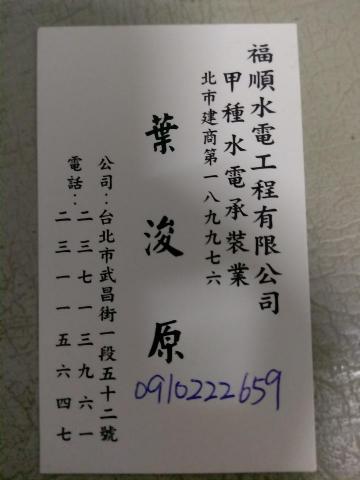 福順水電工程有限公司
甲種水電承裝業
北市建商第一八九九七六
葉浚原
公司：台北市武昌街一段五十二號
電話：二三七一三九六一
二三一一五六四七
0910222659